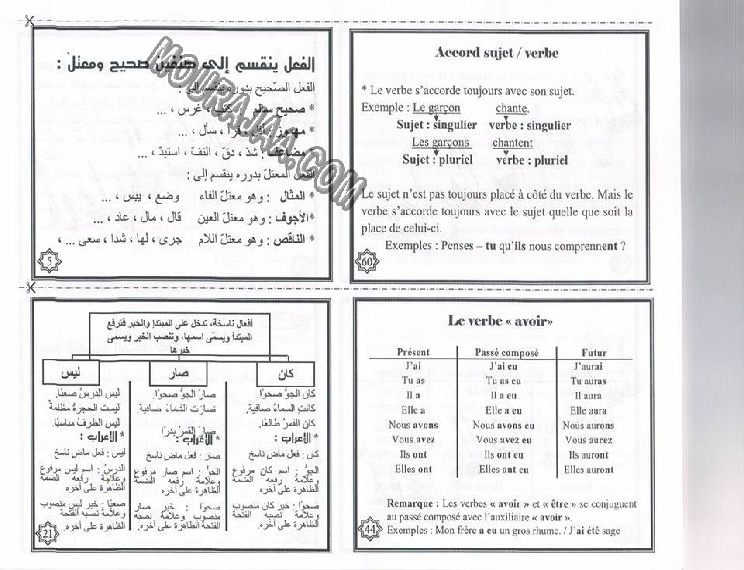 الفعل ينقسم إلى صنفين صحيح ومعتل :
الفعل الصحيح بدوره ينقسم إلى :
* صحيح سالم : كتب ، غرس ، ...
* مهموز : قرأ ، سأل ، ...
* مضاعف : شدّ ، دقّ ، التفّ ، استبدّ ، ...
الفعل المعتل بدوره ينقسم إلى :
* المثال : وهو معتل الفاء وضع ، يبس ، ...
* الأجوف : وهو معتل العين قال ، مال ، عاد ، ...
* الناقص : وهو معتل اللام جرى ، لها ، شدا ، سعى ... ،
5
MOURAJAA.COM
Accord sujet / verbe
* Le verbe s'accorde toujours avec son sujet.
Exemple : Le garçon chante.
Sujet : singulier verbe : singulier
Les garçons chantent
Sujet : pluriel verbe : pluriel
Le sujet n'est pas toujours placé à côté du verbe. Mais le
verbe s'accorde toujours avec le sujet quelle que soit la
place de celui-ci.
Exemples : Penses – tu qu'ils nous comprennent ?
60
أفعال ناسخة، تدخل على المبتدإ والخبر فترفع
المبتدأ ويسمّى اسمها، وتنصب الخبر ويسمى
خبرها
كان
كان الجوّ صحوًا.
كانت السماءُ صافية.
كان القمرُ طالعًا.
* الاعراب :
كان : فعل ماض ناسخ
الجوّ : اسم كان مرفوع
وعلامة رفعه الضمة
الظاهرة على آخره
صحوًا : خبر كان منصوب
وعلامة نصبه الفتحة
الظاهرة على آخره.
صار
صار الجوّ صحوًا.
صارت السماءُ صافية.
صار القمرُ بدرًا
* الاعراب :
صار : فعل ماض ناسخ
الجوّ : اسم صار مرفوع
وعلامة رفعه الضمة
الظاهرة على آخره
صحوا : خبر صار
منصوب وعلامة نصبه
الفتحة الظاهرة على آخره.
ليس
ليس الدرسُ صعبًا.
ليست الحجرةُ مظلمةً
ليس الظرفُ مناسبًا.
* الاعراب :
ليس : فعل ماض ناسخ
الدرسُ : اسم ليس مرفوع
وعلامة رفعه الضمة
الظاهرة على آخره
صعبًا : خبر ليس منصوب
وعلامة نصبه الفتحة
الظاهرة على آخره.
21
Le verbe « avoir»
Présent Passé composé Futur
J'ai J'ai eu J'aurai
Tu as Tu as eu Tu auras
Il a Il a eu Il aura
Elle a Elle a eu Elle aura
Nous avons Nous avons eu Nous aurons
Vous avez Vous avez eu Vous aurez
Ils ont Ils ont eu Ils auront
Elles ont Elles ont eu Elles auront
Remarque : Les verbes « avoir » et « être » se conjuguent
au passé composé avec l'auxiliaire « avoir ».
Exemples : Mon frère a eu un gros rhume. / J'ai été sage
44